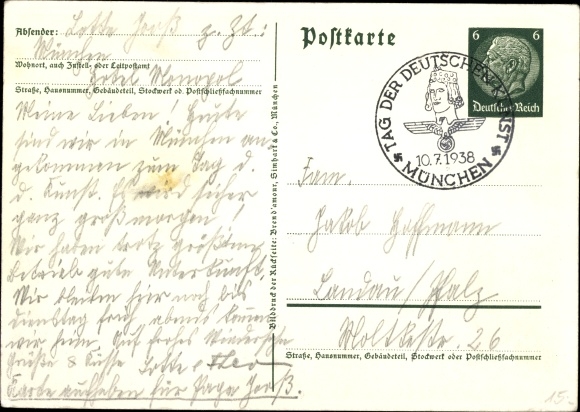 Absender: Lotte Groß z. Zt.:
München
Wohnort, auch Zustell- oder Leitpostamt
Hotel Monopol
Straße, Hausnummer, Gebäudeteil, Stockwerk od. Postschließfachnummer
Meine Lieben! Heute
sind wir in München an
gekommen zum Tag d.
d. Kunst. Es wird sicher
ganz groß morgen!
Wir haben trotz größtem
Betrieb gute Unterkunft.
Wir bleiben hier noch bis
Dienstag früh, abends kommen
wir heim. Auf frohes Wiedersehn
Grüße & Küsse Lotte
Karte aufheben für Papa Groß.
Bilddruck der Rückseite: Brend'amour, Simhart & Co., München
Postkarte
6 6
Deutsches Reich
TAG DER DEUTSCHEN KUNST
10.7.1938
MÜNCHEN
Fam.
Jakob Hoffmann
Landau/Pfalz
Moltkestr. 26
Straße, Hausnummer, Gebäudeteil, Stockwerk oder Postschließfachnummer
15.-